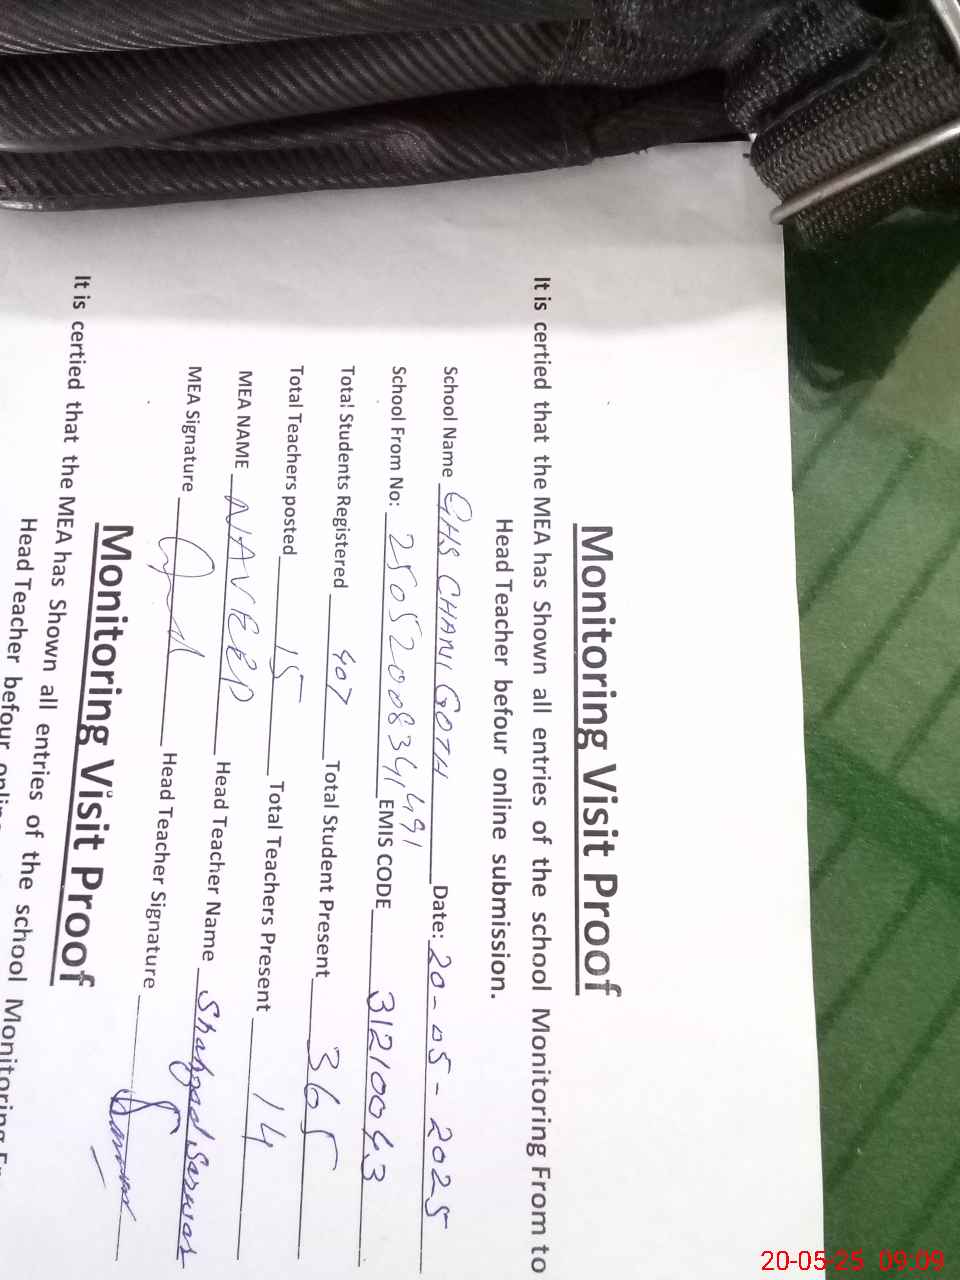 Monitoring Visit Proof
It is certied that the MEA has Shown all entries of the school Monitoring From to
Head Teacher befour online submission.
School Name GHS CHANI GOTH Date: 20-05-2025
School From No: 2505200834,491 EMIS CODE 31210043
Total Students Registered 407 Total Student Present 365
Total Teachers posted 15 Total Teachers Present 14
MEA NAME NAVEED Head Teacher Name Shahzad Sarwar
MEA Signature Head Teacher Signature
Monitoring Visit Proof
It is certied that the MEA has Shown all entries of the school Monitoring
Head Teacher befour online
20-05-25 09:09